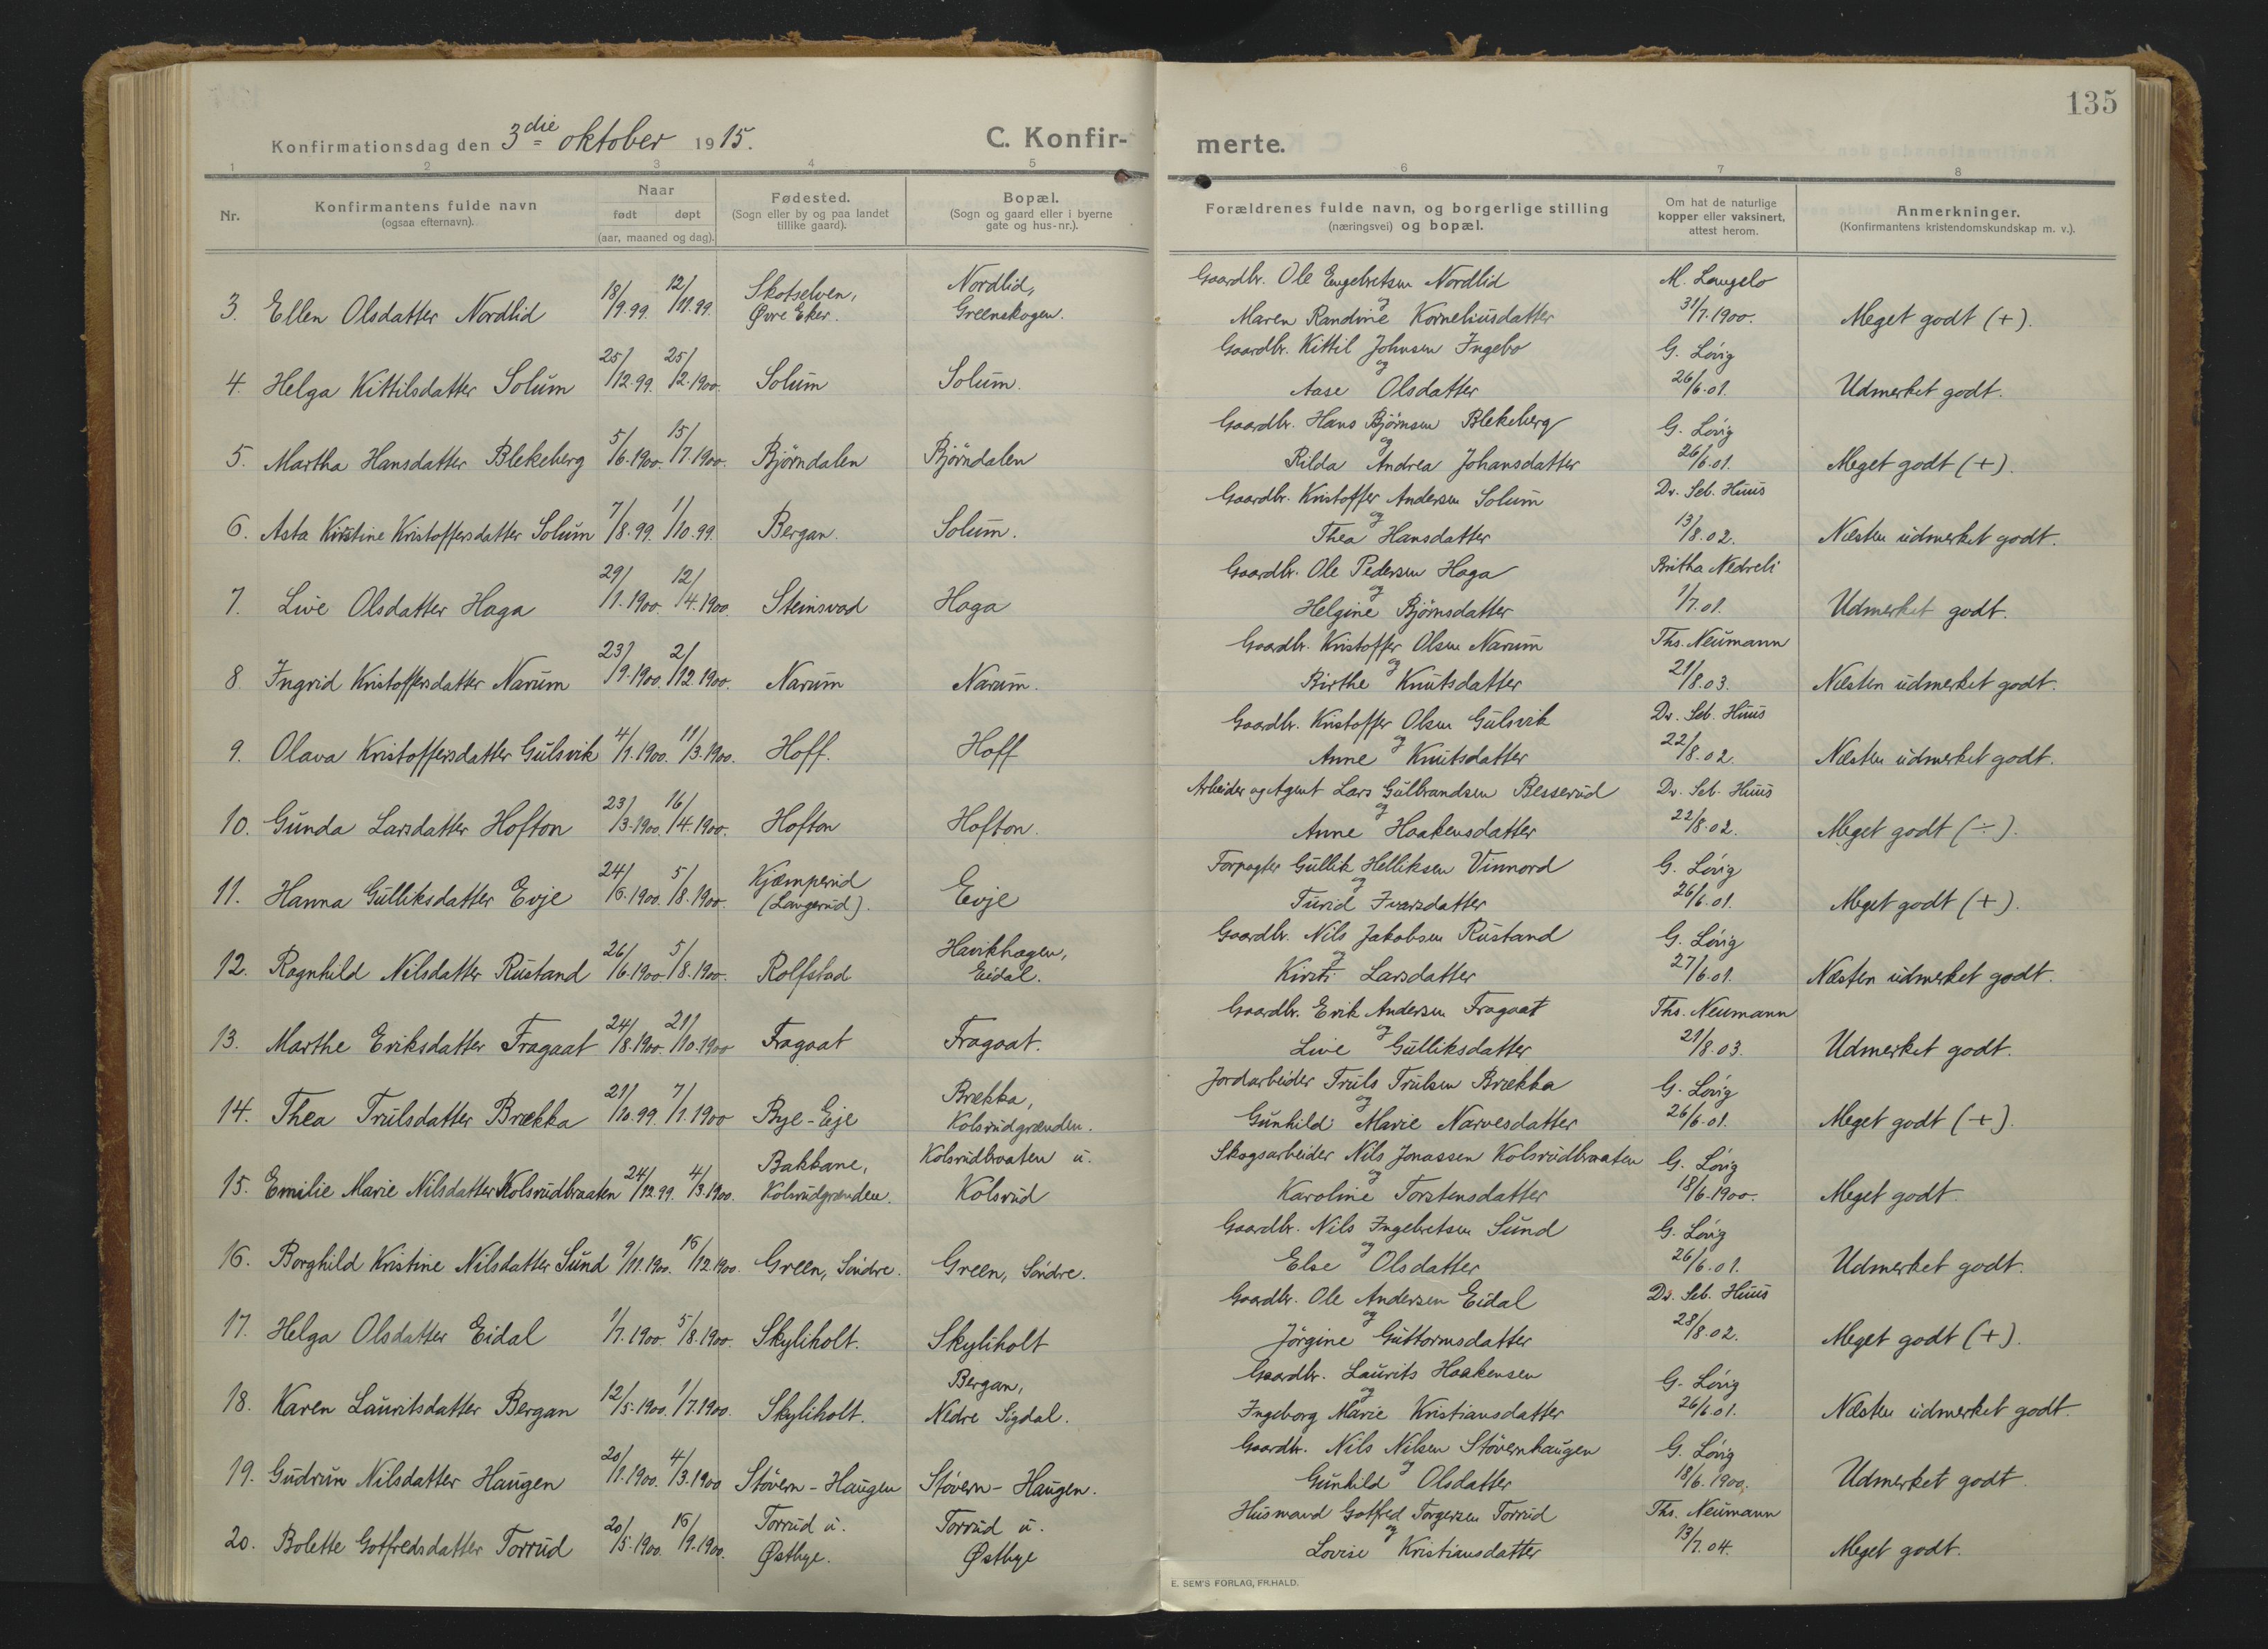 135
Konfirmationsdag den 3die oktober 1915.
C. Konfir-
merte.
1 2 3 4 5 6 7 8
Nr.
Konfirmantens fulde navn
(ogsaa efternavn).
Naar
født døpt
(aar, maaned og dag).
Fødested.
(Sogn eller by og paa landet
tillike gaard).
Bopæl.
(Sogn og gaard eller i byerne
gate og hus-nr.).
Forældrenes fulde navn, og borgerlige stilling
(næringsvei) og bopæl.
Om hat de naturlige
kopper eller vaksinert,
attest herom.
Anmerkninger.
(Konfirmantens kristendomskundskap m. v.).
3. Ellen Olsdatter Nordlid 18/9.99. 12/11.99.
Skotselven,
Øvre Eker.
Nordlid,
Greenskogen.
Gaardbr. Ole Engebretsen Nordlid
og
Maren Randine Korneliusdatter
M. Langelo
31/7.1900.
Meget godt (+).
4. Helga Kittilsdatter Solum 25/12.99. 25/2.1900. Solum Solum.
Gaardbr. Kittil Johnsen Ingebo
og
Aase Olsdatter
G. Lövig
26/6.01.
Udmerket godt.
5. Martha Hansdatter Blekeberg 5/6.1900. 15/7.1900. Björndalen Björndalen
Gaardbr. Hans Björnsen Blekeberg
og
Rilda Andrea Johansdatter
G. Lövig
26/6.01.
Meget godt (+).
6. Asta Kirstine Kristoffersdatter Solum 7/8.99. 1/10.99. Bergan. Solum.
Gaardbr. Kristoffer Andersen Solum
og
Thea Hansdatter
Dr. Seb. Huus
13/8.02.
Næsten udmerket godt.
7. Live Olsdatter Haga 29/1.1900. 12/4.1900. Steinsvad Haga
Gaardbr. Ole Pedersen Haga
og
Helgine Björnsdatter
Britha Nedreli
1/7.01.
Udmerket godt.
8. Ingrid Kristoffersdatter Narum 23/9.1900. 2/12.1900. Narum Narum.
Gaardbr. Kristoffer Olsen Narum
og
Birthe Knutsdatter
Ths. Neumann
21/8.03.
Næsten udmerket godt.
9. Olava Kristoffersdatter Gulsvik 4/1.1900. 11/3.1900. Hoff. Hoff
Gaardbr. Kristoffer Olsen Gulsvik
og
Anne Knutsdatter
Dr. Seb. Huus
22/8.02.
Næsten udmerket godt.
10. Gunda Larsdatter Hofton 23/3.1900. 16/4.1900. Hofton Hofton.
Arbeider og Agent Lars Gulbrandsen Besserud
og
Anne Haakensdatter
Dr. Seb. Huus
22/8.02.
Meget godt (÷).
11. Hanna Gulliksdatter Evje 24/6.1900. 5/8.1900.
Kjæmperud
(Langerud).
Evje
Forpagter Gullik Helliksen Vinnord
og
Turid Ivarsdatter
G. Lövig
26/6.01.
Meget godt (+).
12. Ragnhild Nilsdatter Rustand 26/6.1900. 5/8.1900. Rolfstad
Havikhagen,
Eidal.
Gaardbr. Nils Jakobsen Rustand
og
Kirsti Larsdatter
G. Lövig
27/6.01.
Næsten udmerket godt.
13. Marthe Eriksdatter Fragaat 24/8.1900. 21/10.1900 Fragaat Fragaat.
Gaardbr. Erik Andersen Fragaat
og
Live Gulliksdatter
Ths. Neumann
21/8.03.
Udmerket godt.
14. Thea Trulsdatter Brækka 21/10.99. 7/1.1900 Bye-Eje
Brækka,
Kolsrudgrænden.
Jordarbeider Truls Trulsen Brækka
og
Gunhild Marie Narvesdatter
G. Lövig
26/6.01.
Meget godt (+).
15. Emilie Marie Nilsdatter Kolsrudbraaten 24/12.99. 4/3.1900.
Bakkane,
Kolsrudgrænden.
Kolsrudbraaten u.
Kolsrud
Skogsarbeider Nils Jonassen Kolsrudbraaten
og
Karoline Torstensdatter
G. Lövig
18/6.1900.
Meget godt.
16. Borghild Kristine Nilsdatter Sund 9/11.1900. 16/12.1900. Green, Söndre. Green, Söndre.
Gaardbr. Nils Ingebretsen Sund
og
Else Olsdatter
G. Lövig
26/6.01.
Udmerket godt.
17. Helga Olsdatter Eidal 1/7.1900. 5/8.1900. Skyliholt. Skyliholt
Gaardbr. Ole Andersen Eidal
og
Jörgine Guttormsdatter
Dr. Seb. Huus
28/8.02.
Meget godt (+).
18. Karen Lauritsdatter Bergan 12/5.1900. 1/7.1900. Skyliholt.
Bergan,
Nedre Sigdal.
Gaardbr. Laurits Haakensen
og
Ingeborg Marie Kristiansdatter
G. Lövig
26/6.01.
Næsten udmerket godt.
19. Gudrun Nilsdatter Haugen 20/1.1900. 4/3.1900 Stövern-Haugen Stövern-Haugen.
Gaardbr. Nils Nilsen Stövernhaugen
og
Gunhild Olsdatter
G. Lövig
18/6.1900.
Udmerket godt.
20. Bolette Gotfredsdatter Torrud 20/5.1900. 16/9.1900.
Torrud u.
Østbye.
Torrud u.
Østbye
Husmand Gotfred Torgersen Torrud
og
Lovise Kristiansdatter
Ths. Neumann
13/7.04.
Meget godt.
E. SEM'S FORLAG, FR.HALD.